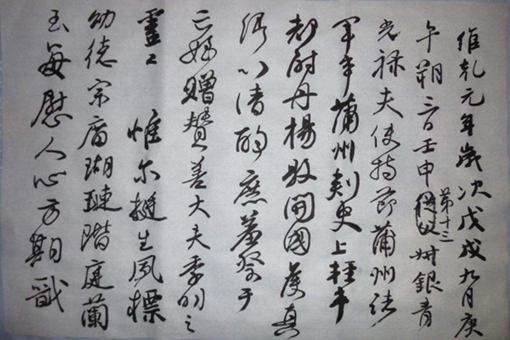 維乾元年歲次戊戌九月庚
午朔三日壬申第十三從父叔銀青
光祿夫使持節蒲州諸
軍事蒲州刺史上輕車
都尉丹楊縣開國侯真
卿以清酌庶羞祭于
亡姪贈贊善大夫季明之
靈曰 惟爾挺生夙標
幼德宗廟瑚璉階庭蘭
玉每慰人心方期戩